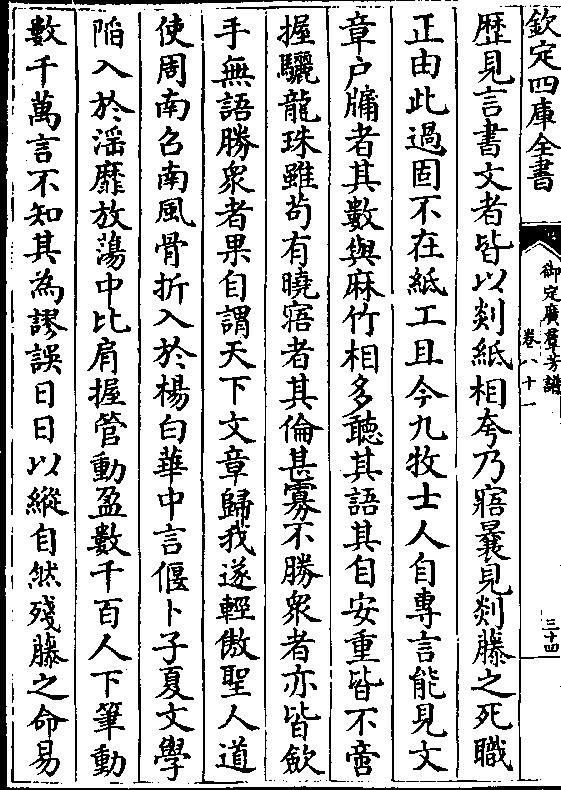 欽定四庫全書
御定廣羣芳譜
卷八十一
三十四
歴見言書文者皆以剡紙相夸乃寤曩見剡藤之死職
正由此過固不在紙工且今九牧士人自專言能見文
章户牖者其數與麻竹相多聽其語其自安重皆不啻
握驪龍珠雖苟有曉寤者其倫甚寡不勝衆者亦皆歛
手無語勝衆者果自謂天下文章歸我遂輕傲聖人道
使周南召南風骨折入於楊白華中言偃卜子夏文學
陷入於滛靡放蕩中比肩握管動盈數千百人下筆動
數千萬言不知其為謬誤日日以縱自然殘藤之命易